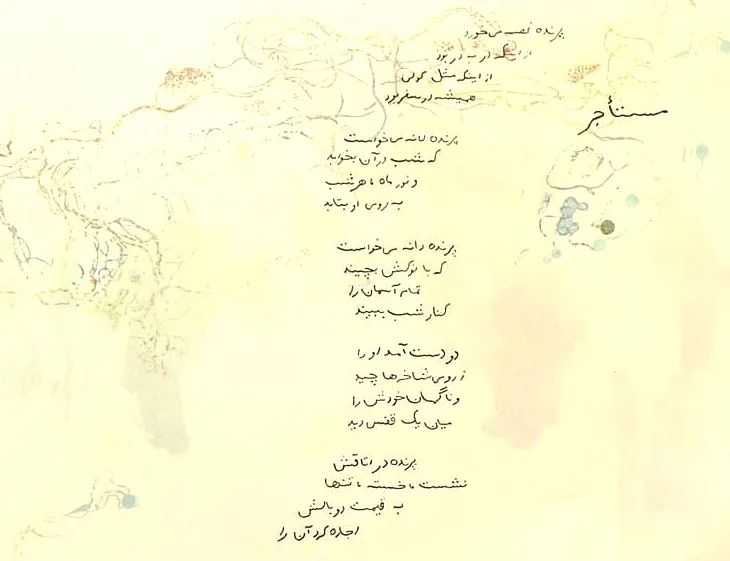 مستأجر
پرنده غصه می‌خورد
از اینکه در به در بود
از اینکه مثل کولی
همیشه در سفر بود
پرنده لانه می‌خواست
که شب در آن بخوابد
و نور ماه هر شب
به روی او بتابد
پرنده دانه می‌خواست
که با نوکش بچیند
تمام آسمان را
کنار شب ببیند
دو دست آمد او را
ز روی شاخه‌ها چید
و ناگهان خودش را
میان یک قفس دید
پرنده در اتاقش
نشست خسته تنها
به قیمت دو بالش
اجاره کرد آن را